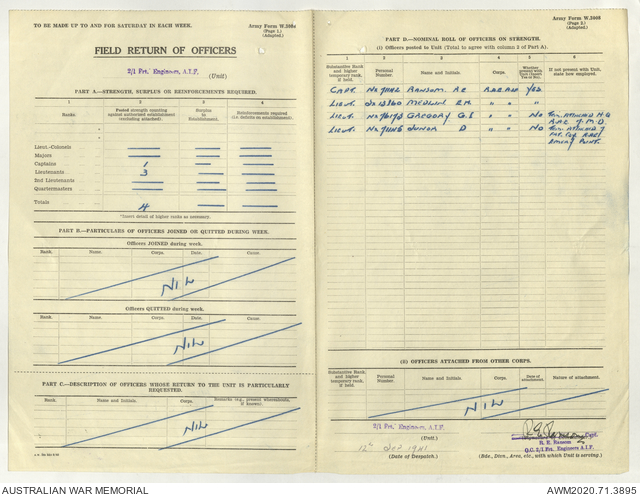 TO BE MADE UP TO AND FOR SATURDAY IN EACH WEEK.
Army Form W.3008
(Page 1.)
(Adapted.)
FIELD RETURN OF OFFICERS
2/1 Frs.' Engineers, A.I.F.
(Unit)
PART A.—STRENGTH, SURPLUS OR REINFORCEMENTS REQUIRED.
1 2 3 4
Ranks.
Posted strength counting
against authorised establishment
(excluding attached).
Surplus
to
Establishment.
Reinforcements required
(i.e. deficits on establishment).
Lieut.-Colonels
Majors
Captains 1
Lieutenants 3
2nd Lieutenants
Quartermasters
Totals 4
*Insert detail of higher ranks as necessary.
PART B.—PARTICULARS OF OFFICERS JOINED OR QUITTED DURING WEEK.
Officers JOINED during week.
Rank. Name. Corps. Date. Cause.
NIL
Officers QUITTED during week.
Rank. Name. Corps. Date. Cause.
NIL
PART C.—DESCRIPTION OF OFFICERS WHOSE RETURN TO THE UNIT IS PARTICULARLY
REQUESTED.
Rank. Name and Initials. Corps. Remarks (e.g., present whereabouts,
if known).
NIL
Army Form W.3008
(Page 2.)
(Adapted.)
PART D.—NOMINAL ROLL OF OFFICERS ON STRENGTH.
(i) Officers posted to Unit (Total to agree with column 2 of Part A).
1 2 3 4 5 6
Substantive Rank
and higher
temporary rank,
if held.
Personal
Number.
Names and Initials.
Corps.
Whether
present with
Unit (insert
Yes or No).
If not present with Unit,
state how employed.
CAPT. RANSOM. R.E YES
LIEUT. R.H. " " "
LIEUT. GREGORY G.S " " NO Tem. ATTACHED H.Q
R.A.E. 7. M.D.
LIEUT. JUNOR D " " NO Tem. ATTACHED 7
(ii) OFFICERS ATTACHED FROM OTHER CORPS.
Substantive Rank
and higher
temporary rank,
if held.
Personal
Number.
Name and Initials.
Corps.
Date of
attachment.
Nature of attachment.
NIL
2/1 Frs.' Engineers, A.I.F.
(Unit.)
12th Dec 1941
(Date of Despatch.)
Capt.
R. E. Ransom
O.C. 2/1 Frs. Engineers A.I.F.
(Bde., Divn, Area, etc., with which Unit is serving.)
AUSTRALIAN WAR MEMORIAL
AWM2020.71.3895